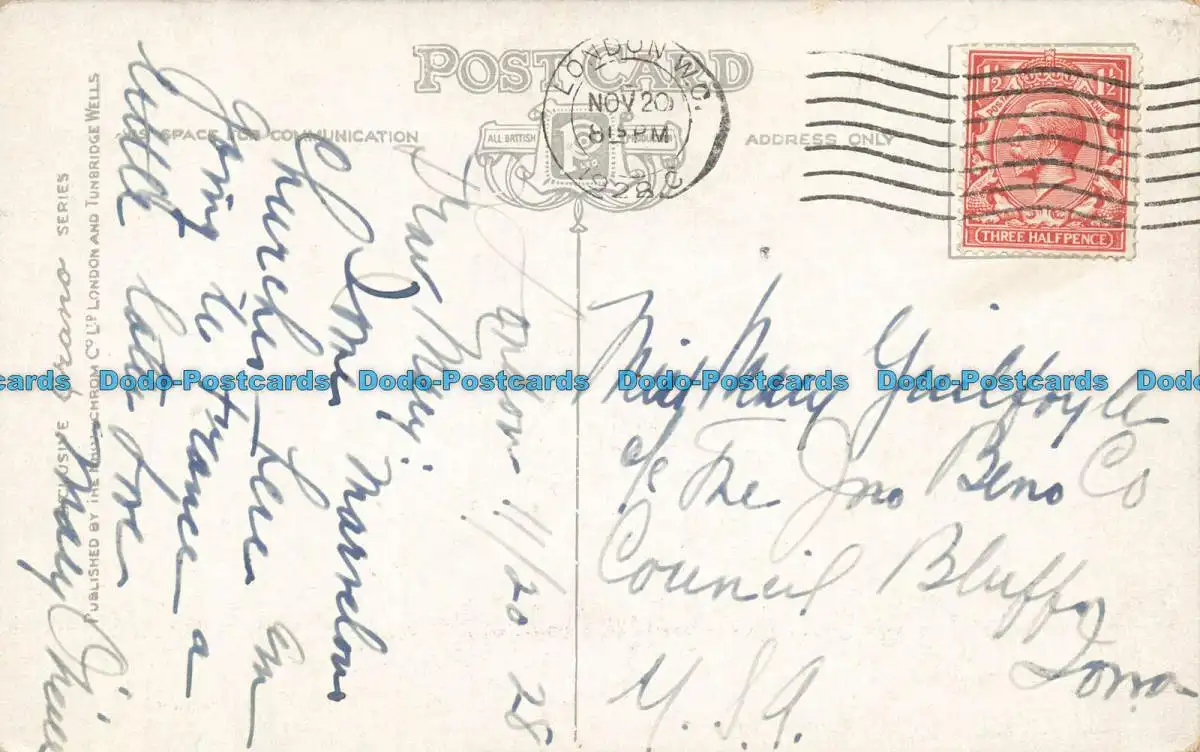 POSTCARD
THIS SPACE FOR COMMUNICATION
ADDRESS ONLY
ALL BRITISH
PRODUCTION
LTD
LONDON. W.C.
NOV 20
8 15 PM
1928
1½ 1½
THREE HALFPENCE
London 11/20 28
Dear May:
Some marvelous
Churches here am
Going to France a
little later
Miss Mary Guilfoyle
c/o The Jno Beno Co
Council Bluffs
Iowa
U.S.A.
EXCLUSIVE SERIES
PUBLISHED BY THE PHOTOCHROM CO. LTD. LONDON AND TUNBRIDGE WELLS
Dodo-Postcards Dodo-Postcards Dodo-Postcards Dodo-Postcards Dodo-Postcards Dodo-Postcards